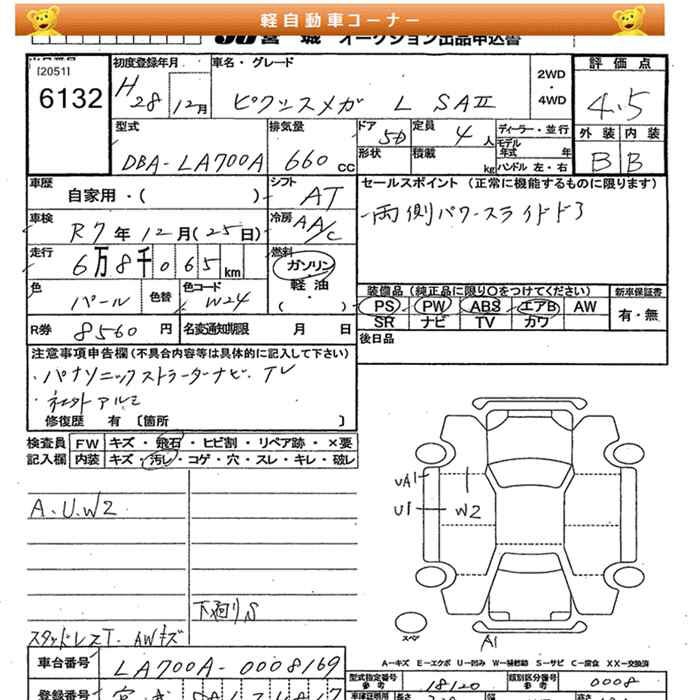 軽自動車コーナー
JU宮城 オークション出品申込書
[2051]
6132
初度登録年月
H28 12月
車名・グレード
ピクシスメガ L SAⅡ
2WD
・
4WD
評価点
4.5
外装 内装
B B
型式
DBA-LA700A
排気量
660 CC
ドア 5D
定員 4人
形状
積載 kg
ディーラー・並行
モデル年式 年
ハンドル 左・右
車歴
自家用・( )
シフト AT
セールスポイント (正常に機能するものに限ります)
両側パワースライドドア
車検
R7年12月(25日)
冷房 AA/C
走行
6万8千065km
燃料
ガソリン
軽油
( )
色
パール
色替
色コード
W24
装備品(純正品に限り○をつけてください)
PS PW ABS エアB AW
SR ナビ TV カワ
新車保証書
有・無
R券 8560円
名変通知期限 月 日
後日品
注意事項申告欄(不具合内容等は具体的に記入して下さい)
・パナソニックストラーダーナビ、TV
・社外アルミ
修復歴 有 〔箇所 〕
検査員
記入欄
FW キズ・飛石・ヒビ割・リペア跡・×要
内装 キズ・汚レ・コゲ・穴・スレ・キレ・破レ
A.U.W2
下廻りS
スタッドレスT. AWキズ
UA1
U1
W2
スペア
A1
A-キズ E-エクボ U-凹み W-補修跡 S-サビ C-腐食 XX-交換済
車台番号 LA700A-0008169
型式指定番号 18120
類別区分番号 0008
登録番号